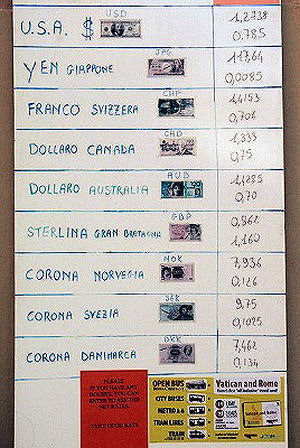 USD
U.S.A. $
1,2738
0,785
JPY
YEN GIAPPONE
117,64
0,0085
CHF
FRANCO SVIZZERA
1,4153
0,706
CAD
DOLLARO CANADA
1,333
0,75
AUD
DOLLARO AUSTRALIA
1,4285
0,70
GBP
STERLINA GRAN BRETAGNA
0,862
1,160
NOK
CORONA NORVEGIA
7,936
0,126
SEK
CORONA SVEZIA
9,75
0,1025
DKK
CORONA DANIMARCA
7,462
0,134
PLEASE
IF YOU HAVE ANY
ENTER TO ASK THE
OPEN BUS
CITY BUSES
METRO A & B
TRAM LINES
TRAIN
Vatican and Rome